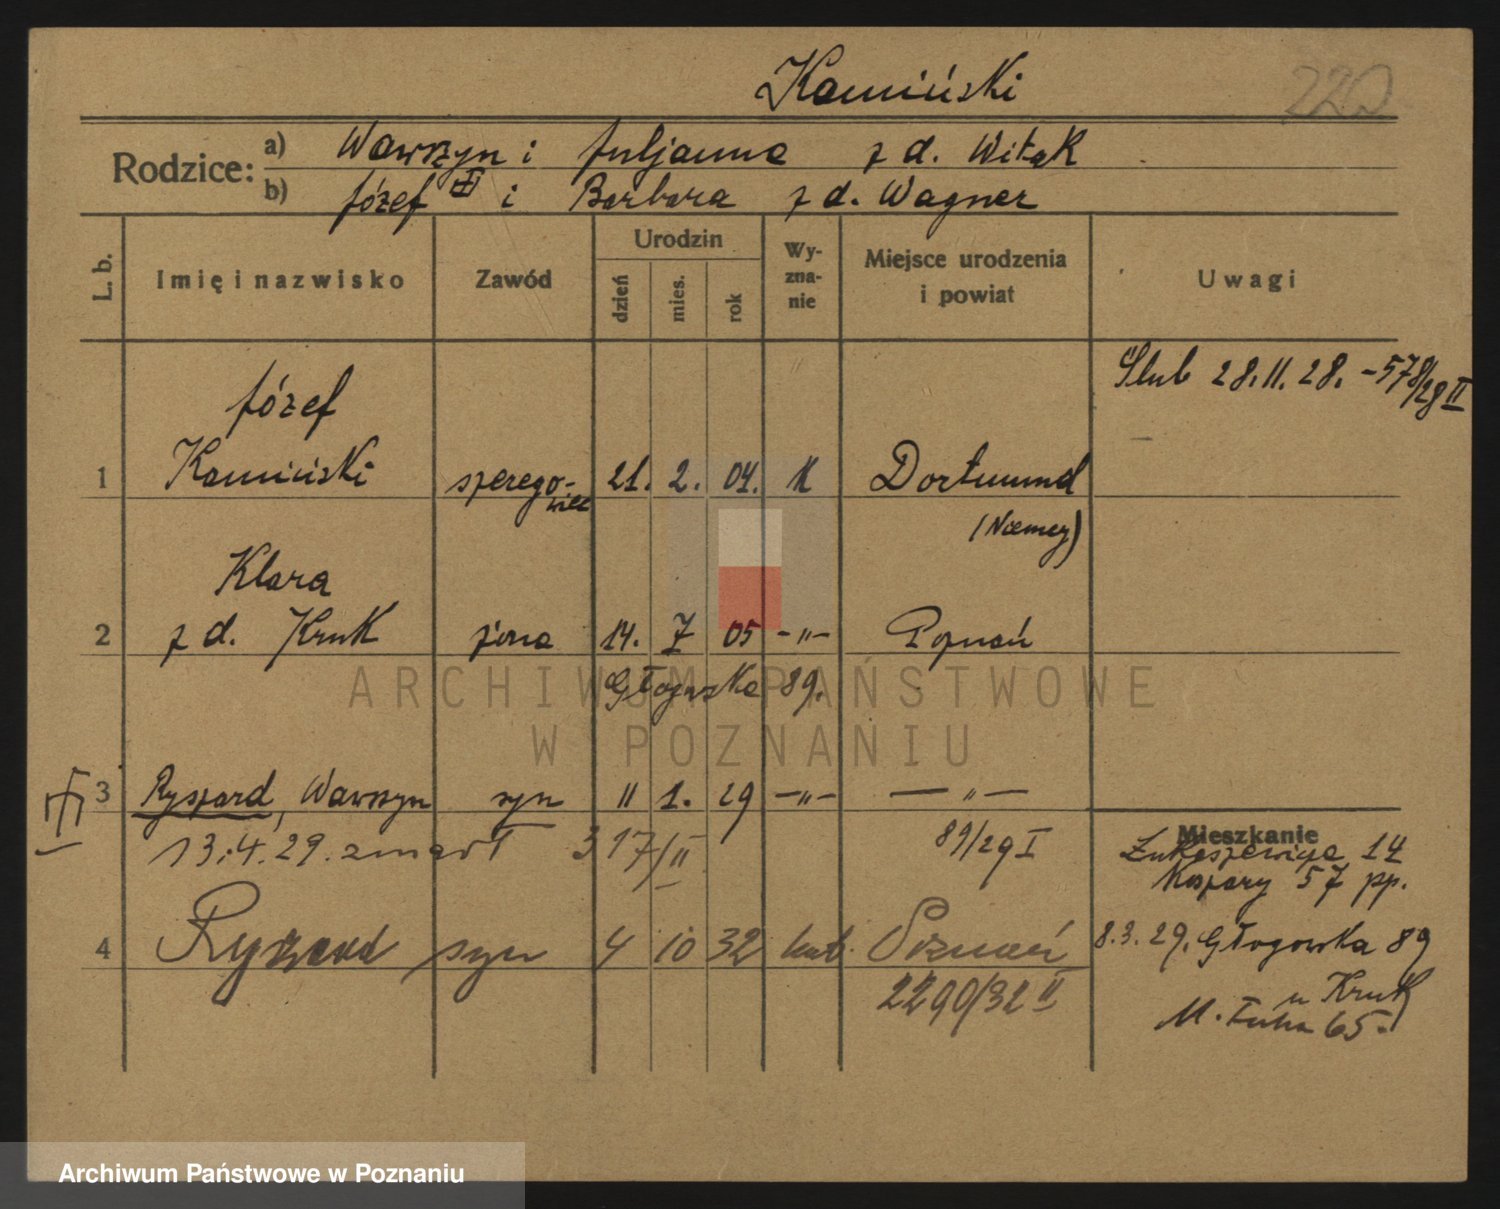 Kamiński
220
Rodzice: a) Wawrzyn i Juljanna z d. Witak
b) Józef i Barbara z d. Wagner
L. b. Imię i nazwisko Zawód Urodzin dzień mies. rok Wyznanie Miejsce urodzenia i powiat Uwagi
Ślub 28.11.28. - 578/28 II
Józef
1 Kamiński szeregowiec 21. 2. 04. k Dortmund
(Niemcy)
Klara
2 z d. Kruk żona 14. 7 05 -"- Poznań
Głogowska 89.
3 Ryszard, Wawrzyn syn 11 1. 29 -"- -"-
13.4.29. zmarł 317/II 89/29 I
Mieszkanie
Łukaszewicza 14
Kospary 57 pp.
4 Ryszard syn 4 10 32 kat. Poznań
2290/32 II
8.3.29. Głogowska 89
u Kruk
M. Focha 65.
ARCHIWUM PAŃSTWOWE
W POZNANIU
Archiwum Państwowe w Poznaniu